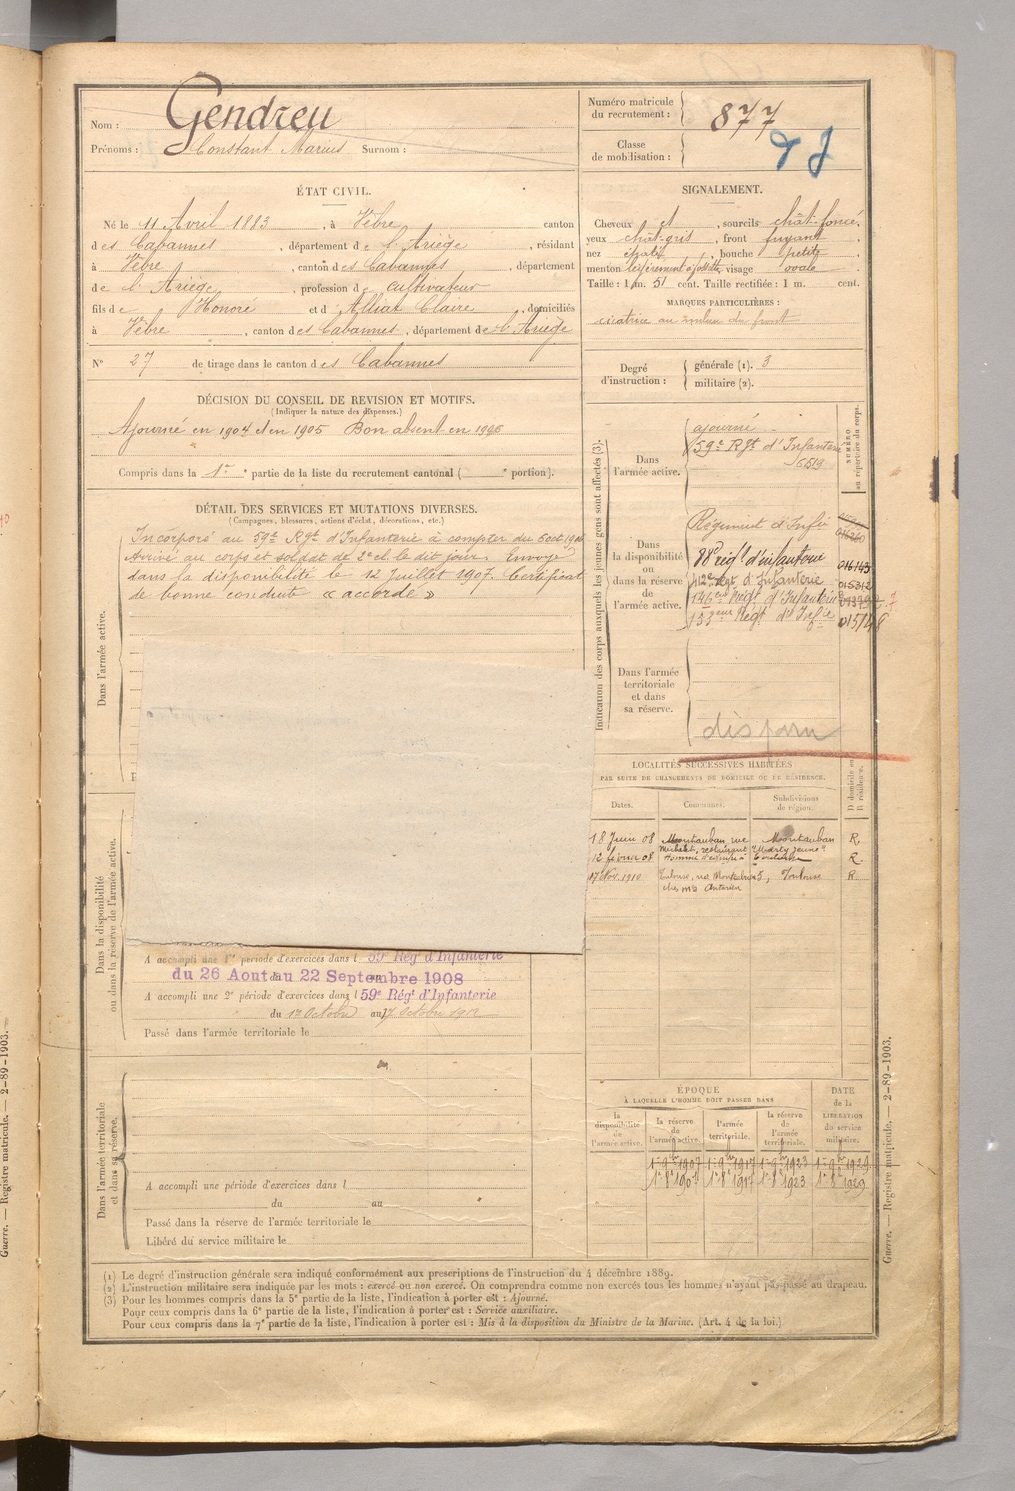 Nom : Gendreu
Prénoms : Constant Marius Surnom :
Numéro matricule du recrutement : 877
Classe de mobilisation :
ÉTAT CIVIL.
Né le 11 Avril 1883, à Vèbre canton
des Cabannes, département de l'Ariège, résidant
à Vèbre, canton des Cabannes, département
de l'Ariège, profession de cultivateur
fils de Honoré et d'Alliat Claire, domiciliés
à Vèbre, canton des Cabannes, département de l'Ariège
N° 27 de tirage dans le canton des Cabannes
SIGNALEMENT.
Cheveux et, sourcils chât-foncé,
yeux chât-gris, front fuyant,
nez, bouche petite,
menton, visage ovale
Taille : 1 m. 51 cent. Taille rectifiée : 1 m. cent.
MARQUES PARTICULIÈRES :
cicatrice au milieu du front
Degré d'instruction : générale (1). 3
militaire (2).
DÉCISION DU CONSEIL DE REVISION ET MOTIFS.
(Indiquer la nature des dispenses.)
Ajourné en 1904 et en 1905 Bon absent en 1906
Compris dans la 1re partie de la liste du recrutement cantonal ( e portion).
DÉTAIL DES SERVICES ET MUTATIONS DIVERSES.
(Campagnes, blessures, actions d'éclat, décorations, etc.)
Dans l'armée active.
Incorporé au 59e Rgt d'Infanterie à compter du 5 oct 1906
Arrivé au corps et soldat de 2e cl. le dit jour. Envoyé
dans la disponibilité le 12 Juillet 1907. Certificat
de bonne conduite « accordé »
Indication des corps auxquels les jeunes gens sont affectés (3).
NUMÉRO au répertoire du corps.
Dans l'armée active.
ajourné
59e Rgt d'Infanterie
6519
Dans la disponibilité ou dans la réserve de l'armée active.
Régiment d'Infie
88e régt d'infanterie 016143
Rgt d'Infanterie 015312
146eme Régt d'Infanterie
153eme Régt d'Infie
Dans l'armée territoriale et dans sa réserve.
disparu
LOCALITÉS SUCCESSIVES HABITÉES
PAR SUITE DE CHANGEMENTS DE DOMICILE OU DE RÉSIDENCE.
Dates. Communes. Subdivisions de région. D domicile ou R résidence.
18 Juin 08 Montauban rue Montauban R
Michelet, restaurant "Marty jeune"
12 février 08 R.
17 Nov. 1910 Toulouse, 5, Toulouse R
chez
Dans la disponibilité ou dans la réserve de l'armée active.
A accompli une 1re période d'exercices dans l 59e Rég d'Infanterie
du 26 Aout au 22 Septembre 1908
A accompli une 2e période d'exercices dans l 59e Rég d'Infanterie
du 1er Octobre au 17 Octobre 1912
Passé dans l'armée territoriale le
Dans l'armée territoriale et dans sa réserve.
A accompli une période d'exercices dans l
du au
Passé dans la réserve de l'armée territoriale le
Libéré du service militaire le
ÉPOQUE
À LAQUELLE L'HOMME DOIT PASSER DANS
DATE de la LIBÉRATION du service militaire.
la disponibilité de l'armée active. la réserve de l'armée active. l'armée territoriale. la réserve de l'armée territoriale.
1er 9bre 1907 1er 9bre 1917 1er 9bre 1923 1er 9bre 1929
1er 8bre 1907 1er 8bre 1917 1er 8bre 1923 1er 8bre 1929
(1) Le degré d'instruction générale sera indiqué conformément aux prescriptions de l'instruction du 4 décembre 1889.
(2) L'instruction militaire sera indiquée par les mots : exercé ou non exercé. On comprendra comme non exercés tous les hommes n'ayant pas passé au drapeau.
(3) Pour les hommes compris dans la 5e partie de la liste, l'indication à porter est : Ajourné.
Pour ceux compris dans la 6e partie de la liste, l'indication à porter est : Service auxiliaire.
Pour ceux compris dans la 7e partie de la liste, l'indication à porter est : Mis à la disposition du Ministre de la Marine. (Art. 4 de la loi.)
Guerre. — Registre matricule. — 2-89-1903.
Guerre. — Registre matricule. — 2-89-1903.